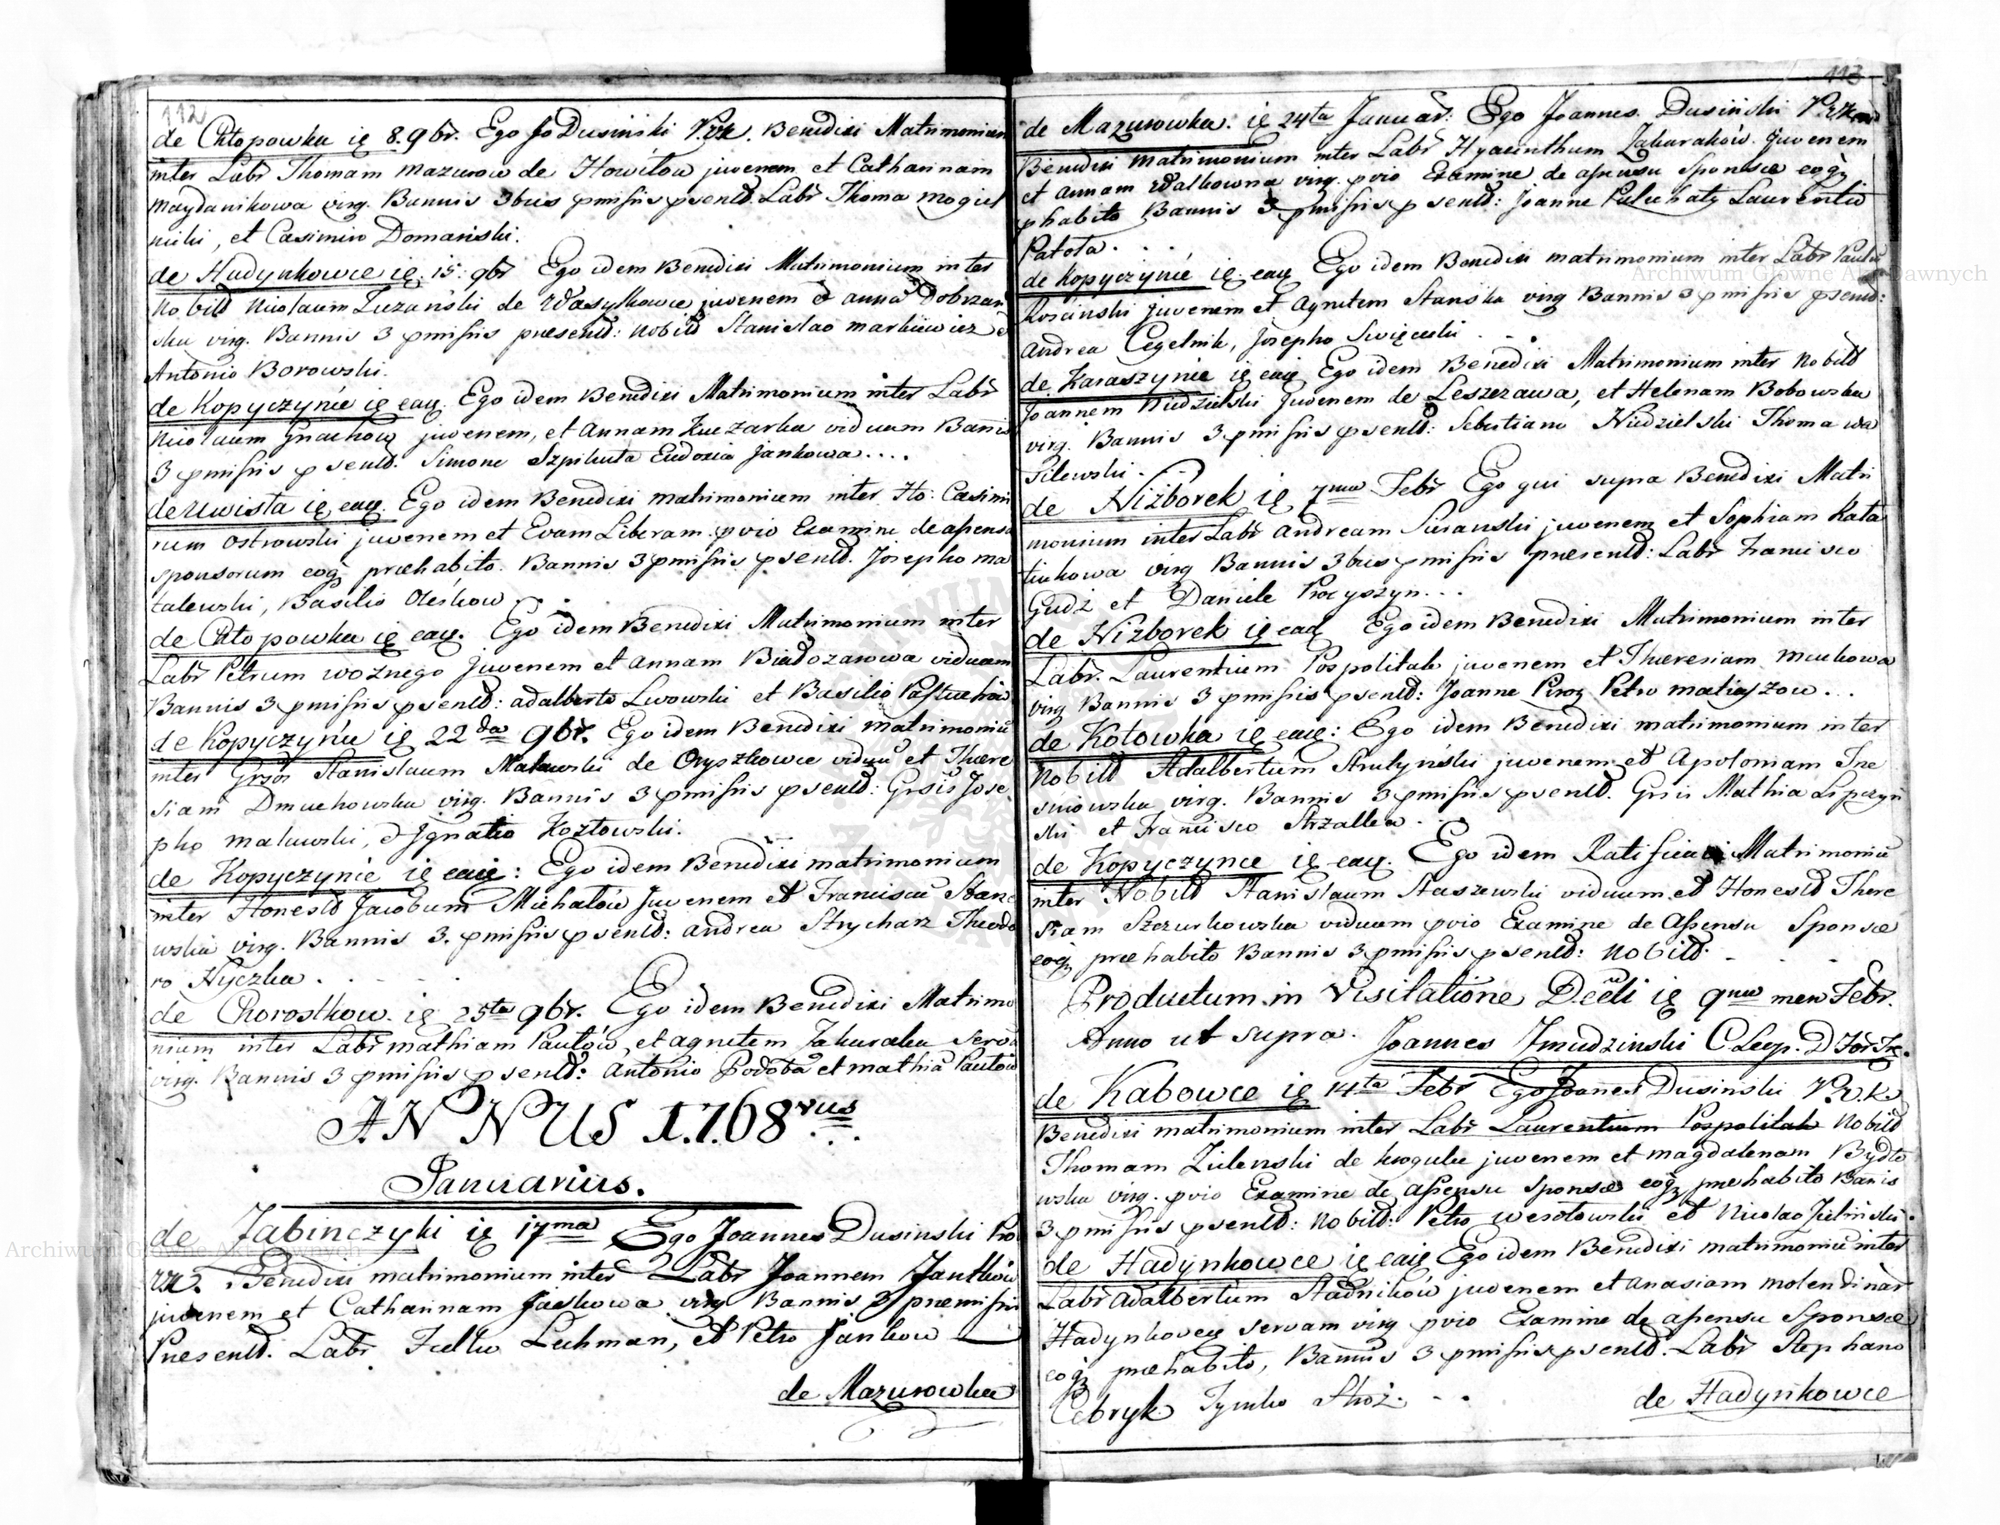 112
de Chłopowka ię 8. 9br. Ego Jo Dusiński Benedixi Matrimonium
inter Labr Thomam Mazurow de Howiłow juvenem et Catharinam
Maydanikowa virg. Bannis 3bus pmissis psentb. Labr Thoma Mogiel
nicki, et Casimiro Domański.
de Hadynkowce ię 15. 9br Ego idem Benedixi Matrimonium inter
Nobilb Nicolaum Luzański de Wasylkowce juvenem et anna Dobrzań
ska virg. Bannis 3 pmissis praesentb: Nobilb Stanislao Markiewicz et
Antonio Borowski.
de Kopyczyńie ię eaq. Ego idem Benedixi Matrimonium inter Labr
Nicolaum Gnachow juvenem, et Annam Kuczarka viduam Bannis
3 pmissis psentb. Simone Szpikuta Eudoxia Jankowa....
de Uwista ię eaq. Ego idem Benedixi matrimonium inter Ho: Casimi
rum Ostrowski juvenem et Evam Liberam pvio Examine de assensu
sponsorum eoq praehabito. Bannis 3 pmissis psentb. Josepho Ma
talewski, Basilio Oleskow...
de Chłopowka ię eaq. Ego idem Benedixi Matrimonium inter
Labr Petrum Woznego juvenem et Annam viduam
Bannis 3 pmissis psentb: adalberto Lwowski et Basilio Pastuchow
de Kopyczyńie ię 22da 9br. Ego idem Benedixi matrimoniu
inter Grsos Stanislaum Makowski de Oryszkowce viduu et There
siam Dmuchowska virg. Bannis 3 pmissis psentb: Grsis Jose
pho Makowski, et Ignatio Kozłowski.
de Kopyczyńie ię eaię: Ego idem Benedixi matrimonium
inter Honestb Jacobum Michałów juvenem et Francisca
wska virg. Bannis 3. pmissis psentb: andrea Strycharz Theodo
ro Hyczka . . . .
de Chorostkow ię 25ta 9br. Ego idem Benedixi Matrimo
nium inter Labr Mathiam Pautów, et agnetem Zakuraka
virg. Bannis 3 pmissis psentb: Antonio Podoba et Mathia Pautów
ANNUS 1768vus
Januarius.
de Jabinczyki ię 17ma Ego Joannes Dusinski
Benedixi matrimonium inter Labr Joannem Jantków
juvenem et Catharinam Jaskowa virg Bannis 3 praemissis
Presentb. Labr Fedko Lechman, et Petro Jankow
de Mazurowka
113
de Mazurowka ię 24ta Januar: Ego Joannes Dusiński
Benedixi matrimonium inter Labr Hyacinthum Zakuraków juvenem
et Annam Walkowna virg. pvio Examine de assensu Sponsae eoq
phabito Bannis 3 pmissis psentb: Joanne Puluchaty Laurentio
Patota. . .
de Kopyczyńie ię eaq Ego idem Benedixi matrimonium inter Labr Paulu
Kościnski juvenem et Agnetem Stańska virg Bannis 3 pmissis psentb:
Andrea Cegelnik, Josepho Swięcicki . . .
de Karaszynie ię eaię Ego idem Benedixi Matrimonium inter Nobilb
Joannem Niedzielski juvenem de Leszczawa, et Helenam Bobowska
virg. Bannis 3 pmissis psentb: Sebastiano Niedzielski Thoma Wa
silewski . . .
de Niżborek ię 7ma Febr Ego qui supra Benedixi Matri
monium inter Labr Andream Suranski juvenem et Sophiam Rata
tiukowa virg Bannis 3bus pmissis praesentb: Labr Francisco
Gudz et Daniele Procyszyn...
de Niżborek ię eaq Ego idem Benedixi Matrimonium inter
Labr. Laurentium Pospolitak juvenem et Theresiam Muchowa
virg Bannis 3 pmissis psentb: Joanne Piroz Petro Matiaszow...
de Kotowka ię eaię: Ego idem Benedixi matrimonium inter
Nobilb Adalbertum Strutyński juvenem et Apoloniam Tre
sniowska virg. Bannis 3 pmissis psentb. Grsis Mathia Lipczyn
ski et Francisco Strzałka . .
de Kopyczynce ię eaq. Ego idem Ratificavi Matrimoniu
inter Nobilb Stanislaum Staszewski viduum et Honestb There
siam Szczurkowska viduam pvio Examine de Assensu Sponsae
eoq praehabito Bannis 3 pmissis psentb: Nobilb. . . .
Productum in Visitatione Decali ię 9na men Febr.
Anno ut supra. Joannes Zmudzinski
de Kabowce ię 14ta Febr Ego Joannes Dusinski
Benedixi matrimonium inter Labr Laurentium Pospolitak Nobilb
Thomam Zielenski de juvenem et Magdalenam Bydło
wska virg. pvio Examine de assensu sponsae eoq praehabito Banis
3 pmissis psentb: Nobilb: Petro Wesołowski et Nicolao Zielinski.
de Hadynkowce ię eaię Ego idem Benedixi matrimoniu inter
Labr Adalbertum Stadników juvenem et Anasiam Molendinar
Hadynkovcen servam virg pvio Examine de assensu Sponsae
eoq praehabito, Bannis 3 pmissis psentb. Labr Stephano
Cebryk Tymko Stroż. . .
de Hadynkowce
Archiwum Główne Akt Dawnych
Archiwum Główne Akt Dawnych